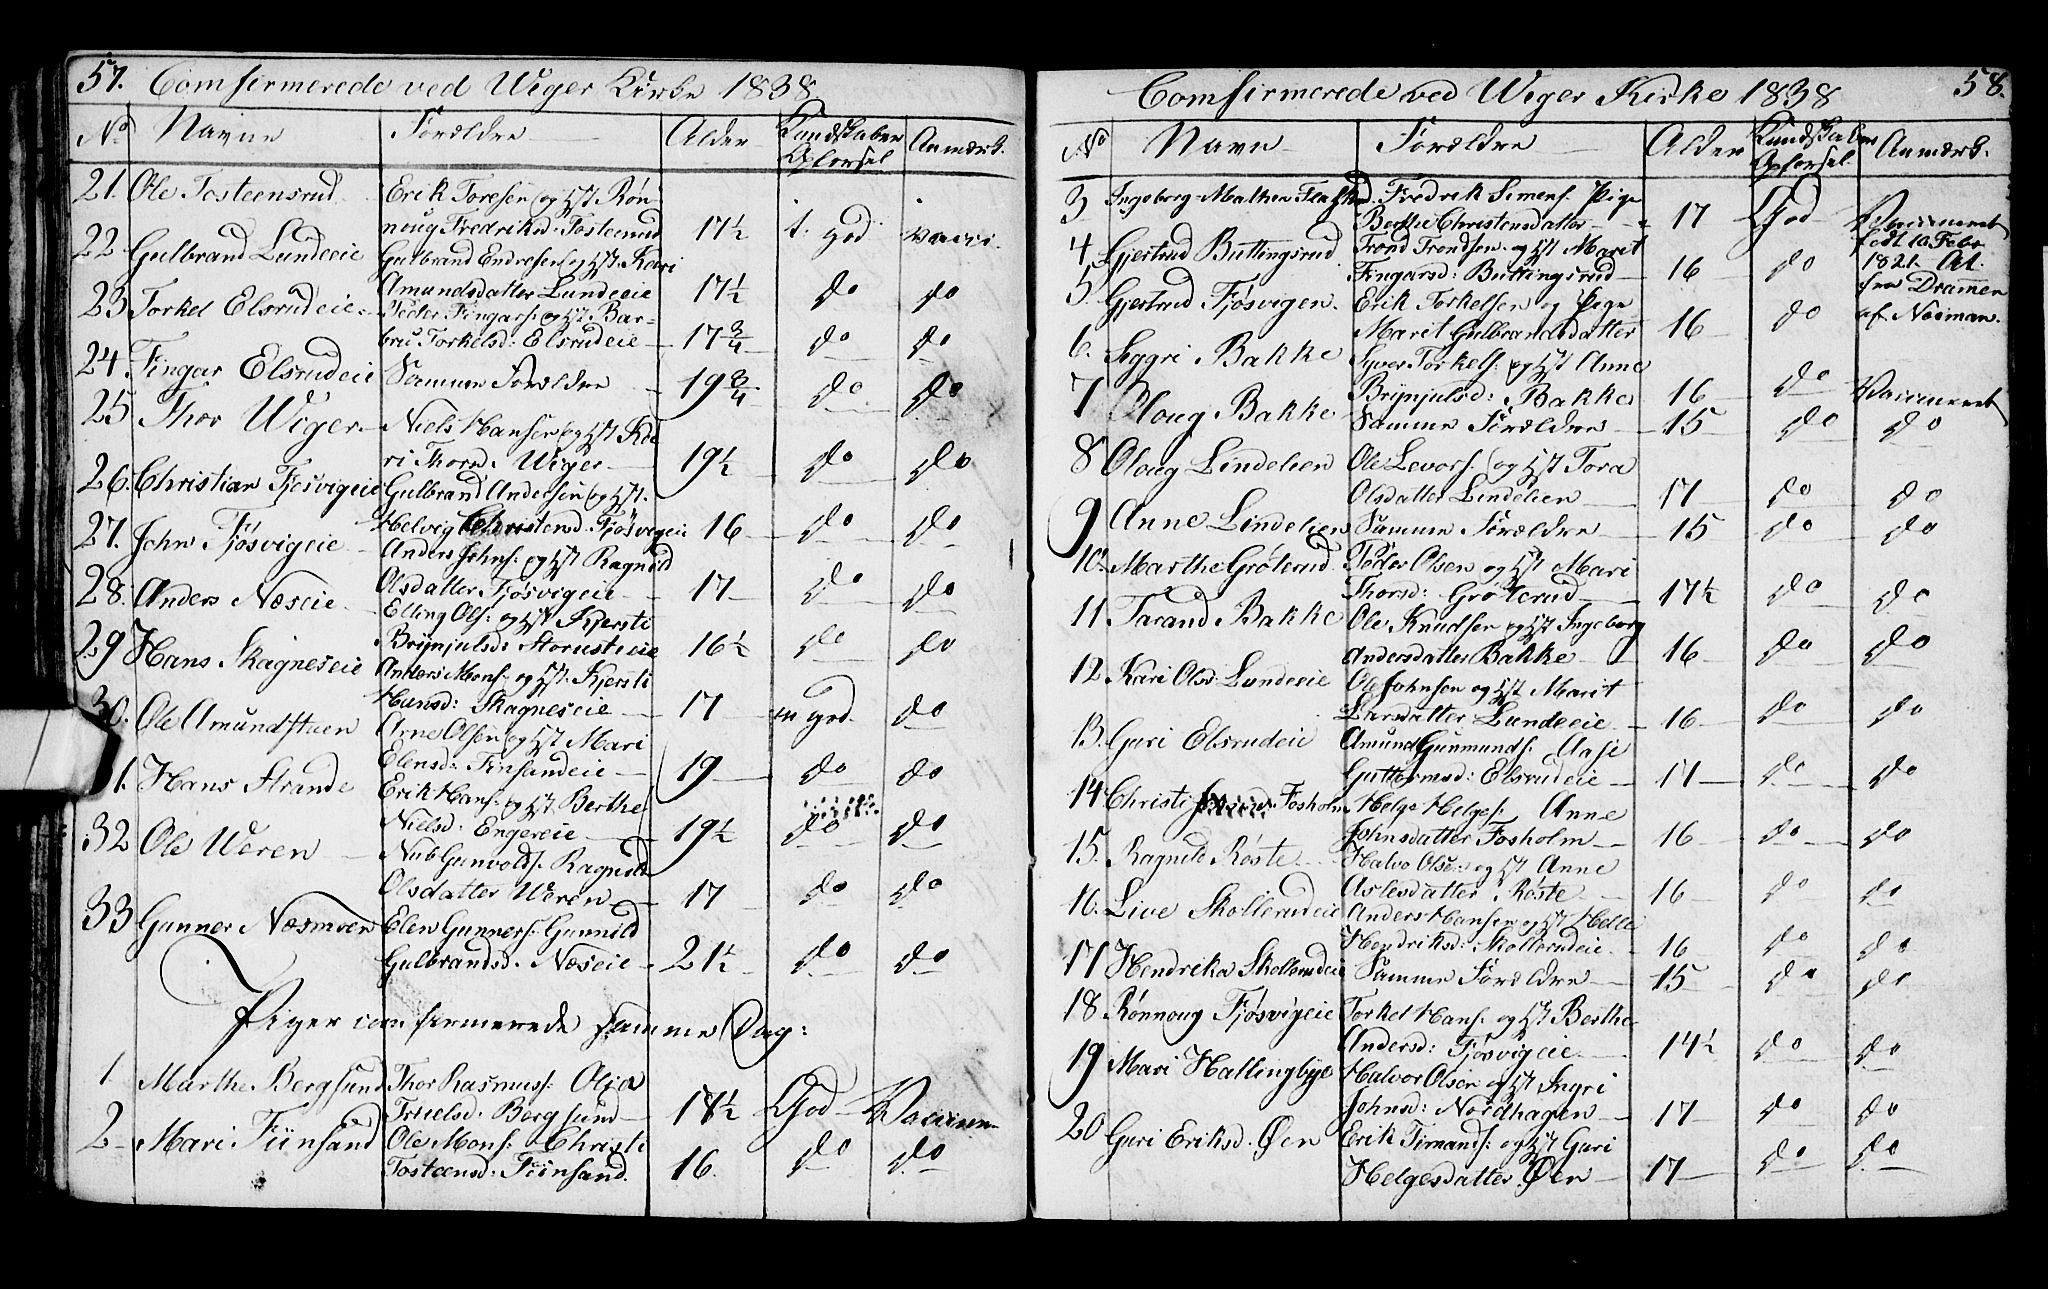 57. Comfirmerede ved Wiger Kirke 1838
No Navne Forældre Alder Kundskaber Opførsel Anmærk.
21. Ole Tosteensrud Erik Toresen og Hst Røn-
noug Fredriksd. Tosteensrud 17½ t. god vacci.
22 Gulbrand Lundeeie Gulbrand Endresen og Hst. Kari
Amundsdatter Lundeeie 17½ do do
23 Torkel Elsrudeie Peder Fingars: og Hst Bar-
bru Torkelsd: Elsrudeie 17¾ do do
24. Fingar Elsrudeie Samme Forældre 19¾ do do
25 Thor Wiger Niels Hansen og Hst Ka-
ri Thorsd. Wiger 19½ do do
26. Christian Fjøsvigeie Gulbrand Andersen og Hst.
Helvig Christensd. Fjøsvigeie 16 do do
27. John Fjøsvigeie Anders Johns: og Hst Ragnild
Olsdatter Fjøsvigeie 17 do do
28. Anders Næseie Elling Ols: og Hst Kjersti
Brynjulsd: Storusteeie 16½ do do
29 Hans Skagneseie Anders Mons: og Hst. Kjersti
Hansd: Skagneseie 17 m god. do
30. Ole Amundstuen Arne Olsen og Hst Mari
Elensd: Finsandeie 19 do do
1. Hans Strande Erik Hans: og Hst Berthe
Nielsd: Engereie 19½ do do
32 Ole Weren Nub Gunvolds: Ragnild
Olsdatter Weren 17 do do
33 Gunner Næsmoen Elen Gunners: Gunnild
Gulbrandsd. Næseie 21½ do do
Piger comfirmerede samme Dag:
1 Marthe Bergsund Thor Rasmuss: Olia
Truelsd: Bergsund 18½ God Vaccinen
2 Mari Fiinsand Ole Mons: Christi
Tosteensd: Fiinsand. 16. do do
Comfirmerede ved Wiger Kirke 1838 58.
No Navn Forældre Alder Kundskaber Opførsel Anmærk.
3 Ingeborg Mathea Fredrik Simens: Pige
Berthe Christensdatter 17 God Vaccineret
født 10 Febr
1821. At.
fra Dramen
af Næiman.
4. Gjertrud Buttingsrud Trond Trondsen og Hst Marit
Fingarsd: Buttingsrud 16 do
5 Gjertrud Fjøsvigen. Erik Torkelsen og Pige
Marit Gulbrandsdatter 16 do
6. Siggri Bakke Syver Torkels: og Hst Anne
Brynjulsd: Bakke 16 do Vaccineret
7 Oloug Bakke Samme Forældre 15 do do
8 Oloug Lindelien Ole Levors: og Hst Tora
Olsdatter Lindelien 17 do do
9 Anne Lindelien Samme Forældre 15 do do
10. Marthe Grøterud Peder Olsen og Hst Mari
Thorsd: Grøterud 17½ do do
11 Tarand Bakke Ole Knudsen og Hst Ingeborg
Andersdatter Bakke 16 do do
12. Kari Olsd: Lundeeie Ole Johnsen og Hst Marit
Larsdatter Lundeeie 16 do do
13. Guri Elsrudeie Amund Gunmunds: Aase
Guttormsd: Elsrudeie 17 do do
14 Christi Fosholm Helge Helges: Anne
Johnsdatter Fosholm 16 do do
15. Ragnild Røste Halvo Olse: og Hst Anne
Aslesdatter Røste 16 do do
16. Live Skollerudeie Anders Hansen og Hst Helle
Hendriksd: Skollerudeie 16 do do
17 Hendrika Skollerudeie Samme Forældre 15 do do
18 Rønnoug Fjøsvigeie Torkel Hans: og Hst Berthe
Andersd: Fjøsvigeie 14½ do do
19 Mari Hallingbye Halvor Olsen og Hst Ingri
Johnsd: Nordhagen 17 do do
20 Guri Eriksd. Øen Erik Timands: og Hst Guri
Helgesdatter Øen 17 do do